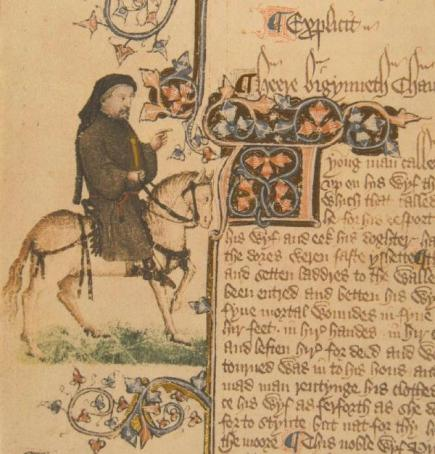 ¶ Explicit
¶ Heere bigynneth Chau
A yong man calle
vp on his wyf th
which that called
he for his desport
his wyf and eek his doghter ha
the dores weren faste yshette ¶
and setten laddres to the walle
been entred and betten his wy
fyue mortal woundes in fyue
hir feet · in hir handes · in hir
and leften hir for deed and w
tourned was in to his hous and
mad man rentynge his clothes
ce his wyf as ferforth as she d
for to stynte but nat for thy h
the moore ¶ This noble wyf Pr